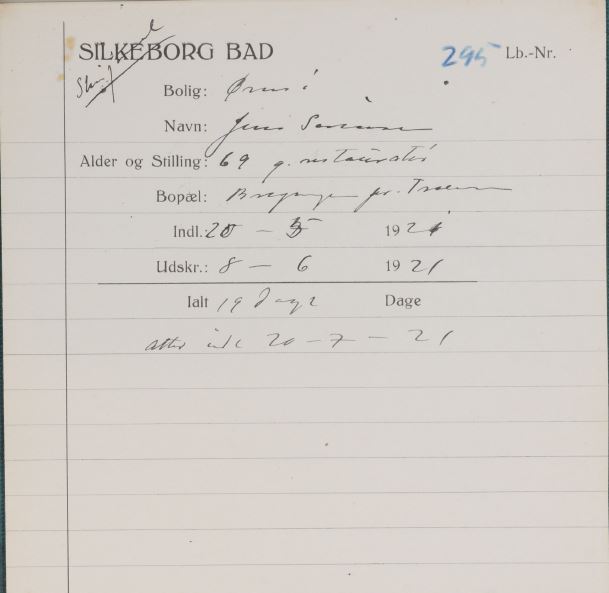 SILKEBORG BAD 295 Lb.-Nr.
Bolig:
Navn: Jens Sørensen
Alder og Stilling: 69 g. restauratør
Bopæl: pr.
Indl.: 20 - 5 1921
Udskr.: 8 - 6 1921
Ialt 19 Dage Dage
atter indl 20 - 7 - 21